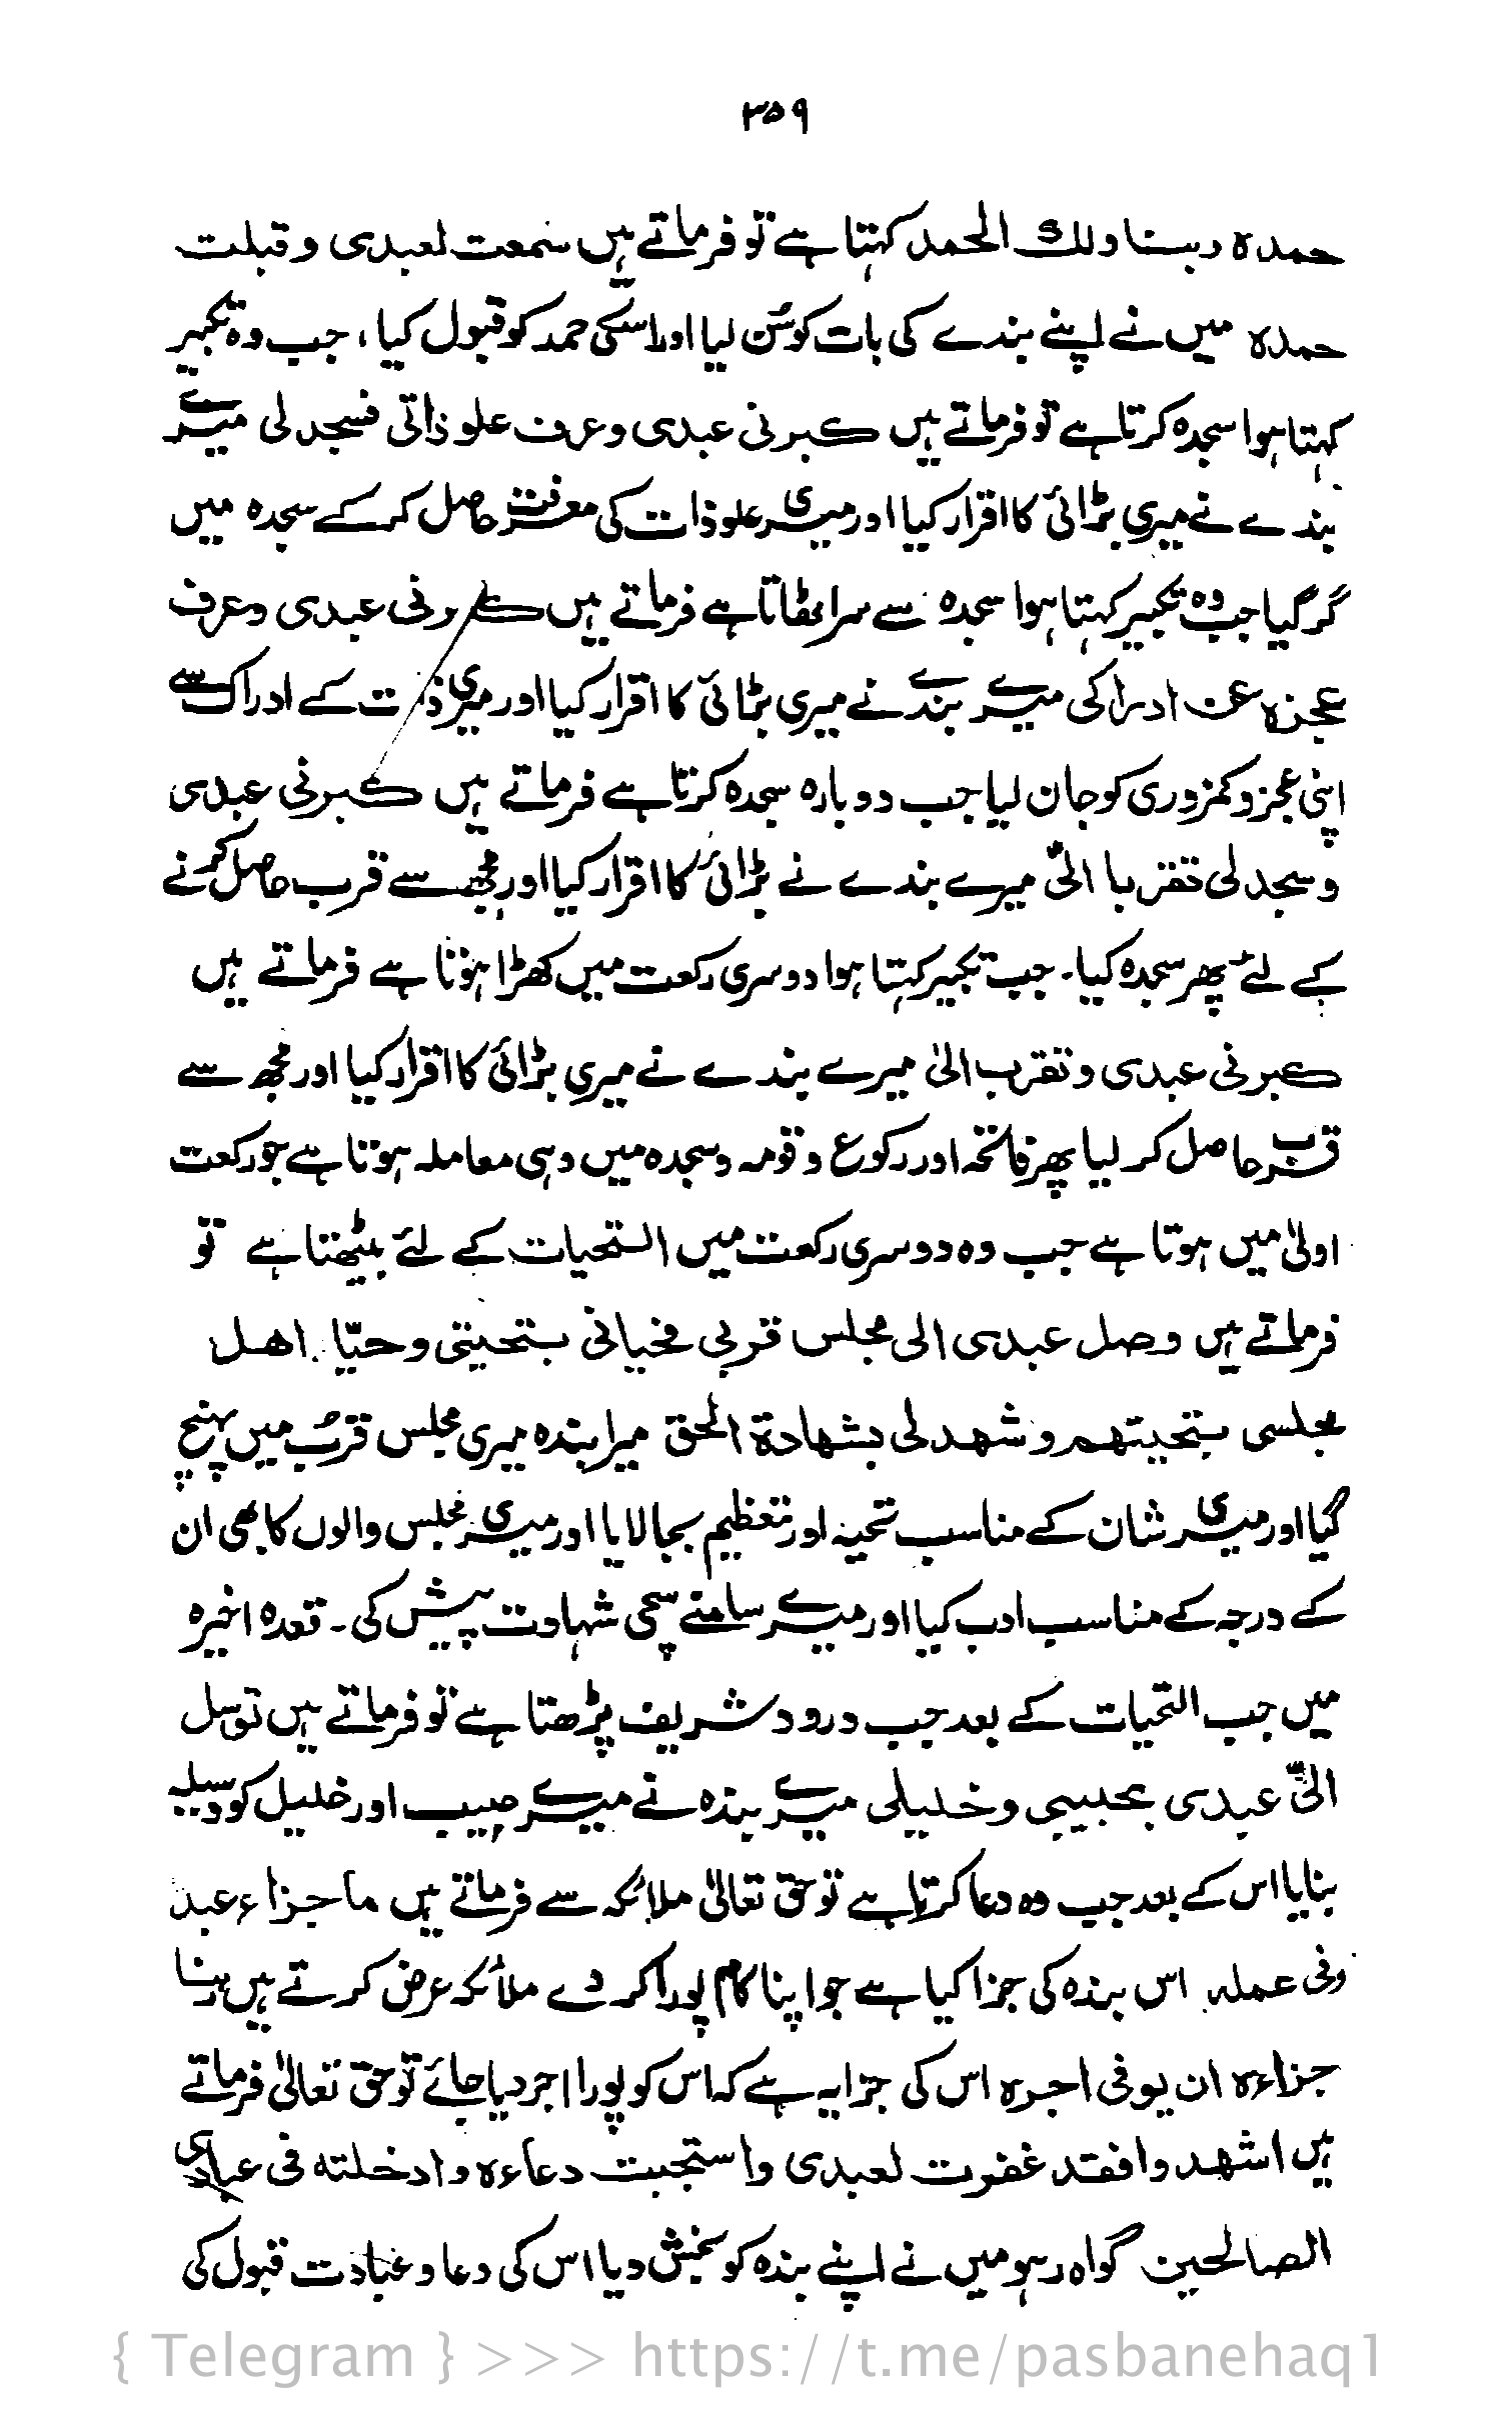 ۳۵۹
حمدہ ربنا ولك الحمد کہتا ہے تو فرماتے ہیں سمعت لعبدی و قبلت
حمدہ میں نے اپنے بندے کی بات کو سُن لیا اور اسکی حمد کو قبول کیا، جب وہ تکبیر
کہتا ہوا سجدہ کرتا ہے تو فرماتے ہیں کبرنی عبدی و عرف علو ذاتی فسجد لی میرے
بندے نے میری بڑائی کا اقرار کیا اور میری علو ذات کی معرفت حاصل کر کے سجدہ میں
گر گیا جب وہ تکبیر کہتا ہوا سجدہ سے سر اٹھاتا ہے فرماتے ہیں کبرنی عبدی وعرف
عجزہ عن ادراکی میرے بندے نے میری بڑائی کا اقرار کیا اور میری ذات کے ادراک سے
اپنی عجز و کمزوری کو جان لیا جب دوبارہ سجدہ کرتا ہے فرماتے ہیں کبرنی عبدی
و سجد لی تقربا الیّ میرے بندے نے بڑائی کا اقرار کیا اور مجھ سے قرب حاصل کرنے
کے لئے پھر سجدہ کیا۔ جب تکبیر کہتا ہوا دوسری رکعت میں کھڑا ہوتا ہے فرماتے ہیں
کبرنی عبدی و تقرب الیٰ میرے بندے نے میری بڑائی کا اقرار کیا اور مجھ سے
قرب حاصل کر لیا پھر فاتحہ اور رکوع و قومہ و سجدہ میں وہی معاملہ ہوتا ہے جو رکعت
اولیٰ میں ہوتا ہے جب وہ دوسری رکعت میں التحیات کے لئے بیٹھتا ہے تو
فرماتے ہیں وصل عبدی الی مجلس قربی فحیانی بتحیتی و حیّا اھل
مجلسی بتحیتھم و شھد لی بشھادۃ الحق میرا بندہ میری مجلس قرب میں پہنچ
گیا اور میری شان کے مناسب تحیہ اور تعظیم بجا لایا اور میری مجلس والوں کا بھی ان
کے درجہ کے مناسب ادب کیا اور میرے سامنے سچی شہادت پیش کی۔ قعدہ اخیرہ
میں جب التحیات کے بعد جب درود شریف پڑھتا ہے تو فرماتے ہیں توسل
الیّ عبدی بحبیبی وخلیلی میرے بندہ نے میرے حبیب اور خلیل کو وسیلہ
بنایا اس کے بعد جب وہ دعا کرتا ہے تو حق تعالیٰ ملائکہ سے فرماتے ہیں ما جزاء عبد
وفی عملہ اس بندہ کی جزا کیا ہے جو اپنا کام پورا کر دے ملائکہ عرض کرتے ہیں ربنا
جزاءہ ان یوفی اجرہ اس کی جزا یہ ہے کہ اس کو پورا اجر دیا جائے تو حق تعالیٰ فرماتے
ہیں اشھدوا فقد غفرت لعبدی واستجبت دعاءہ وادخلتہ فی عبادی
الصالحین گواہ رہو میں نے اپنے بندہ کو بخش دیا اس کی دعا و عبادت قبول کی
{ Telegram } >>> https://t.me/pasbanehaq1